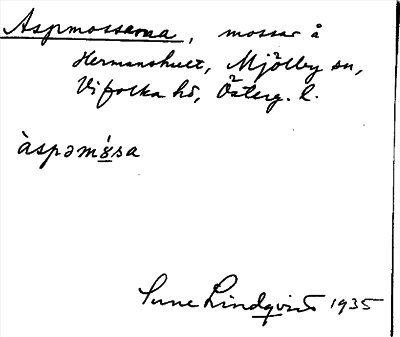 Aspmossarna, mossar å
Hermanshult, Mjölby sn,
Vifolka hd, Österg. l.
àspəmȣ́sa
Sune Lindqvist 1935